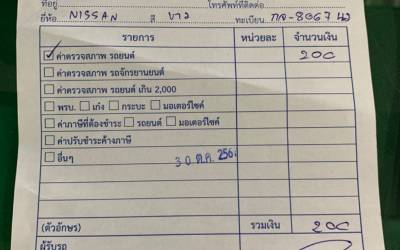 ที่อยู่ โทรศัพท์ที่ติดต่อ
ยี่ห้อ NISSAN สี ขาว ทะเบียน กจ-8067
รายการ หน่วยละ จำนวนเงิน
ค่าตรวจสภาพ รถยนต์ 200
ค่าตรวจสภาพ รถจักรยานยนต์
ค่าตรวจสภาพ รถยนต์ เกิน 2,000
พรบ. เก๋ง กระบะ มอเตอร์ไซค์
ค่าภาษีที่ต้องชำระ รถยนต์ มอเตอร์ไซค์
ค่าปรับชำระค้างภาษี
อื่นๆ 30 ต.ค. 256
(ตัวอักษร) รวมเงิน 200
ผู้รับรถ